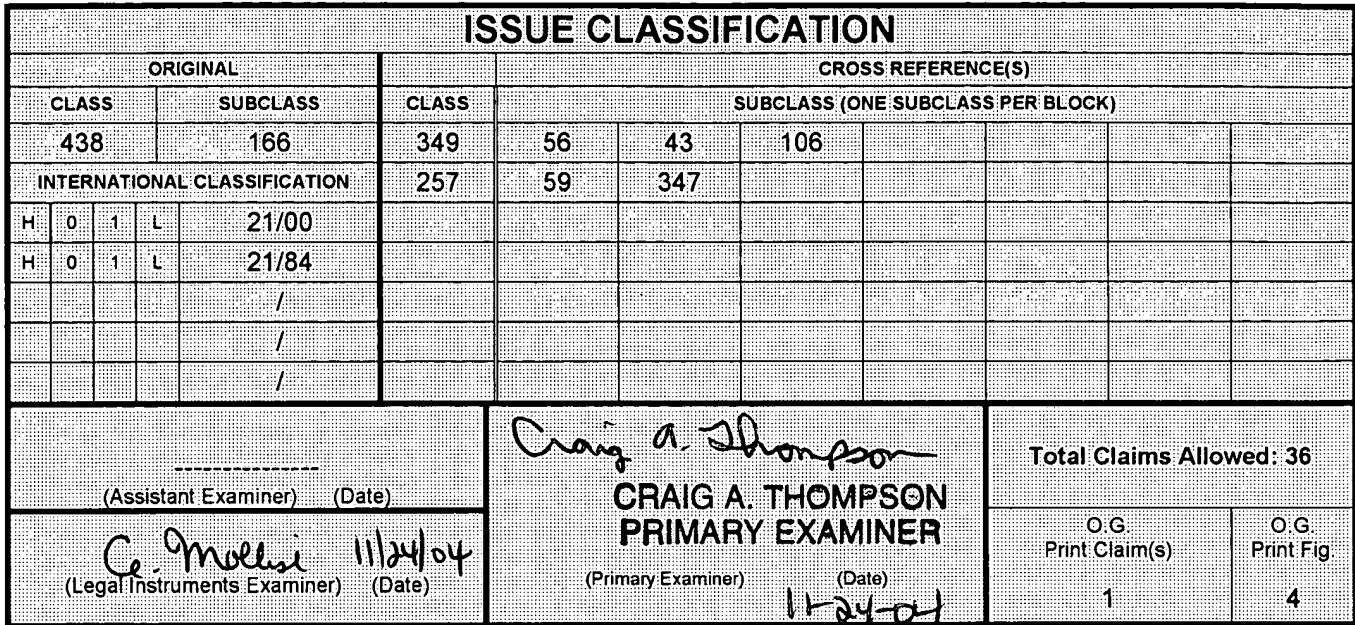 ISSUE CLASSIFICATION
ORIGINAL CROSS REFERENCE(S)
CLASS SUBCLASS CLASS SUBCLASS (ONE SUBCLASS PER BLOCK)
438 166 349 56 43 106
INTERNATIONAL CLASSIFICATION 257 59 347
H 0 1 L 21/00
H 0 1 L 21/84
/
/
/
--------------
(Assistant Examiner) (Date)
11/24/04
(Legal Instruments Examiner) (Date)
Craig A. Thompson
CRAIG A. THOMPSON
PRIMARY EXAMINER
(Primary Examiner) (Date)
11-24-04
Total Claims Allowed: 36
O.G. O.G.
Print Claim(s) Print Fig.
1 4